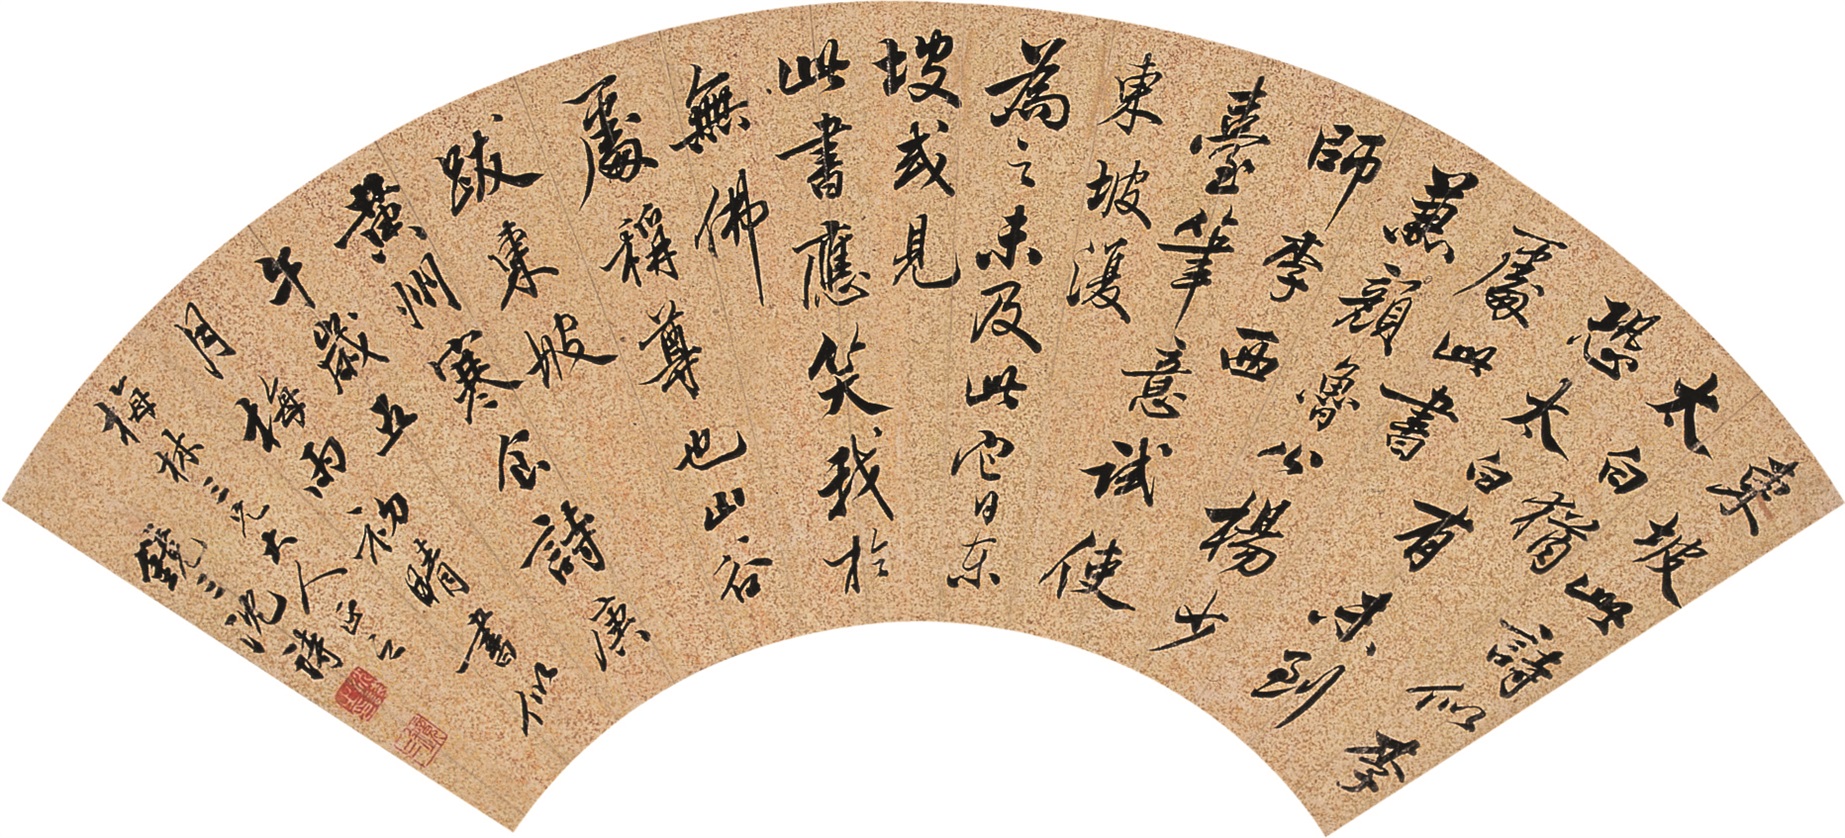 東坡此詩似李
太白猶
恐太白有未到
處此書
兼顏魯公楊少
師李西
臺筆意試使
東坡復
為之未及此它日东
坡或見
此書應笑我於
無佛
處稱尊也山谷
跋東坡
黃州寒食詩庚
午歲五
月梅雨初晴書似
梅林三兄大人正之
鏡三沈